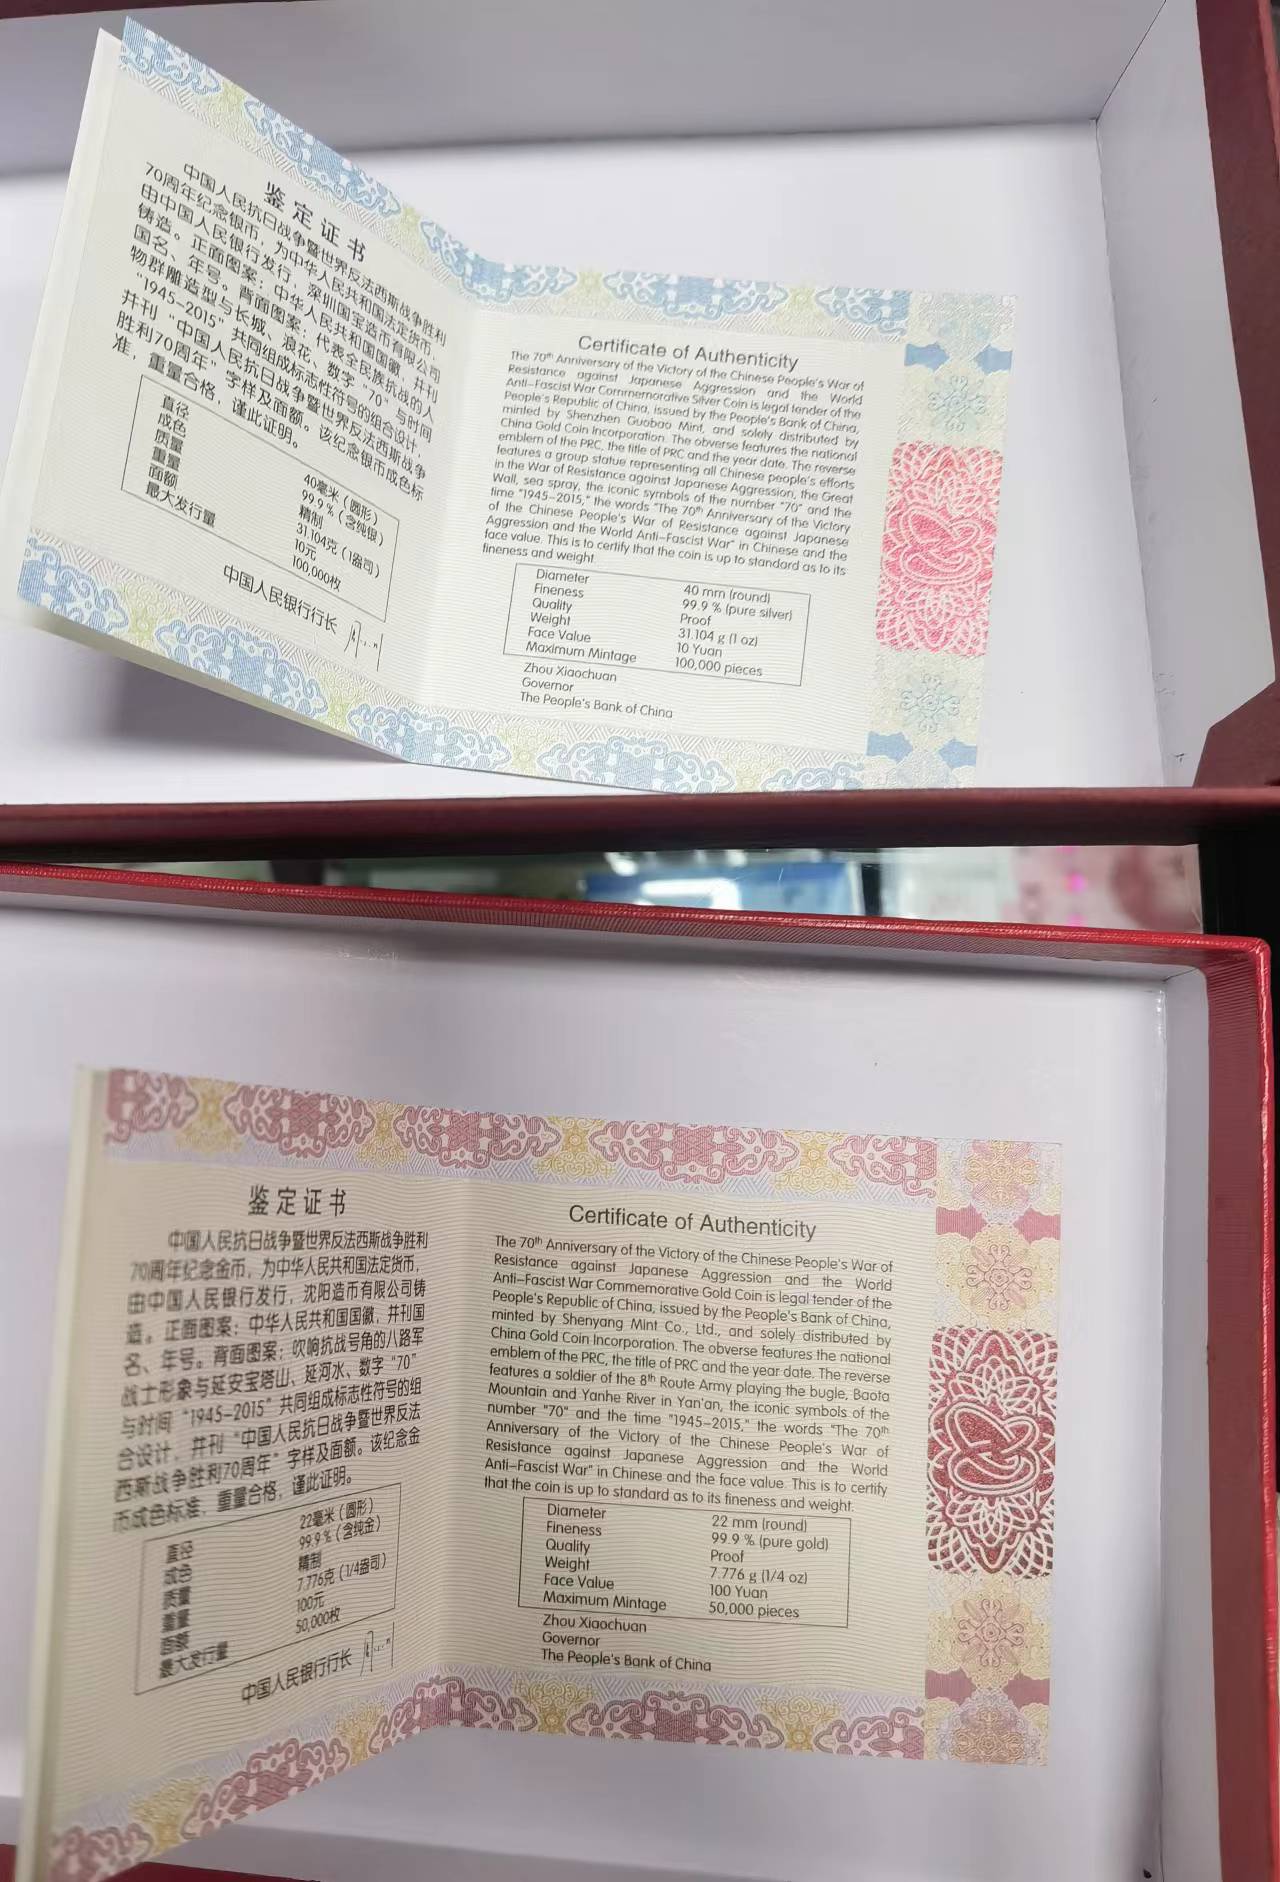 鉴定证书
中国人民抗日战争暨世界反法西斯战争胜利
70周年纪念银币，为中华人民共和国法定货币，
由中国人民银行发行，深圳国宝造币有限公司
铸造。正面图案：中华人民共和国国徽，并刊
国名、年号。背面图案：代表全民族抗战的人
物群雕造型与长城、浪花、数字“70”与时间
“1945-2015”共同组成标志性符号的组合设计，
并刊“中国人民抗日战争暨世界反法西斯战争
胜利70周年”字样及面额。该纪念银币成色标
准，重量合格，谨此证明。
直径 40毫米（圆形）
成色 99.9％（含纯银）
质量 精制
重量 31.104克（1盎司）
面额 10元
最大发行量 100,000枚
中国人民银行行长
Certificate of Authenticity
The 70th Anniversary of the Victory of the Chinese People's War of
Resistance against Japanese Aggression and the World
Anti-Fascist War Commemorative Silver Coin is legal tender of the
People's Republic of China, issued by the People's Bank of China,
minted by Shenzhen Guobao Mint, and solely distributed by
China Gold Coin Incorporation. The obverse features the national
emblem of the PRC, the title of PRC and the year date. The reverse
features a group statue representing all Chinese people's efforts
in the War of Resistance against Japanese Aggression, the Great
Wall, sea spray, the iconic symbols of the number "70" and the
time "1945-2015," the words "The 70th Anniversary of the Victory
of the Chinese People's War of Resistance against Japanese
Aggression and the World Anti-Fascist War" in Chinese and the
face value. This is to certify that the coin is up to standard as to its
fineness and weight.
Diameter 40 mm (round)
Fineness 99.9 % (pure silver)
Quality Proof
Weight 31.104 g (1 oz)
Face Value 10 Yuan
Maximum Mintage 100,000 pieces
Zhou Xiaochuan
Governor
The People's Bank of China
鉴定证书
中国人民抗日战争暨世界反法西斯战争胜利
70周年纪念金币，为中华人民共和国法定货币，
由中国人民银行发行，沈阳造币有限公司铸
造。正面图案：中华人民共和国国徽，并刊国
名、年号。背面图案：吹响抗战号角的八路军
战士形象与延安宝塔山、延河水、数字“70”
与时间“1945-2015”共同组成标志性符号的组
合设计，并刊“中国人民抗日战争暨世界反法
西斯战争胜利70周年”字样及面额。该纪念金
币成色标准，重量合格，谨此证明。
直径 22毫米（圆形）
成色 99.9％（含纯金）
质量 精制
重量 7.776克（1/4盎司）
面额 100元
最大发行量 50,000枚
中国人民银行行长
Certificate of Authenticity
The 70th Anniversary of the Victory of the Chinese People's War of
Resistance against Japanese Aggression and the World
Anti-Fascist War Commemorative Gold Coin is legal tender of the
People's Republic of China, issued by the People's Bank of China,
minted by Shenyang Mint Co., Ltd., and solely distributed by
China Gold Coin Incorporation. The obverse features the national
emblem of the PRC, the title of PRC and the year date. The reverse
features a soldier of the 8th Route Army playing the bugle, Baota
Mountain and Yanhe River in Yan'an, the iconic symbols of the
number "70" and the time "1945-2015," the words "The 70th
Anniversary of the Victory of the Chinese People's War of
Resistance against Japanese Aggression and the World
Anti-Fascist War" in Chinese and the face value. This is to certify
that the coin is up to standard as to its fineness and weight.
Diameter 22 mm (round)
Fineness 99.9 % (pure gold)
Quality Proof
Weight 7.776 g (1/4 oz)
Face Value 100 Yuan
Maximum Mintage 50,000 pieces
Zhou Xiaochuan
Governor
The People's Bank of China